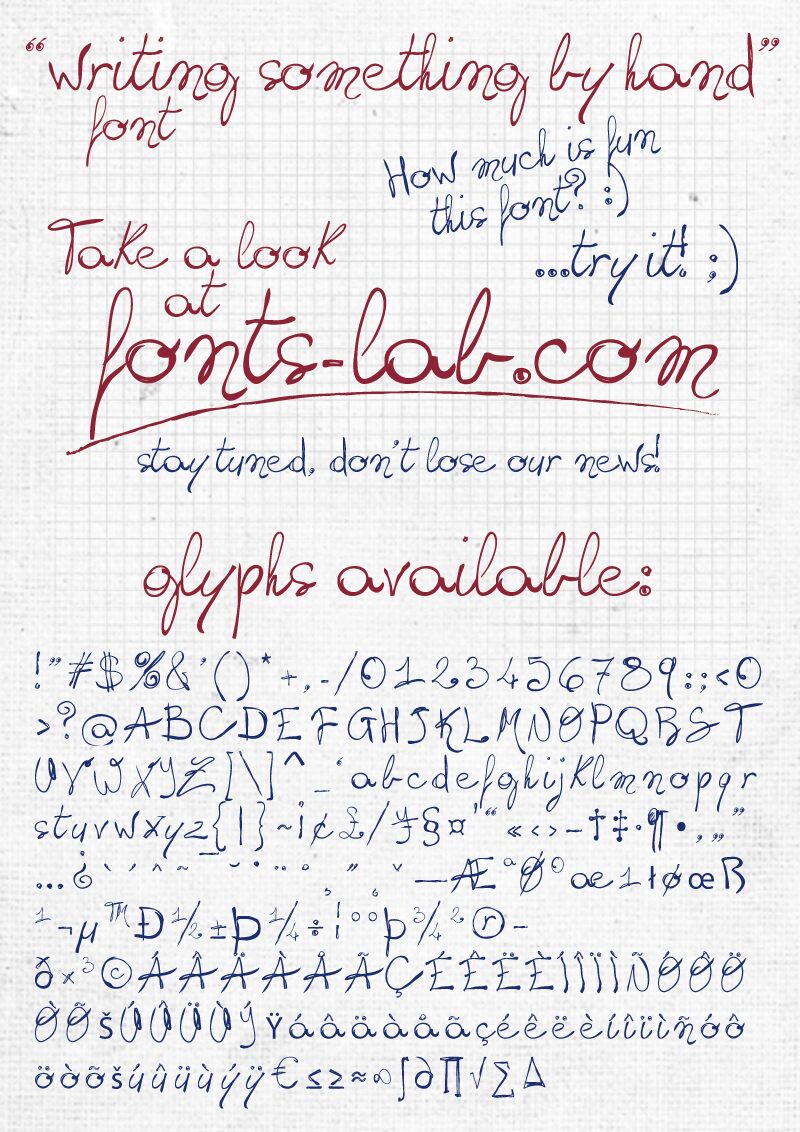 “writing something by hand”
font
How much is fun
this font? :)
Take a look
...try it! ;)
at
fonts-lab.com
stay tuned, don't lose our news!
glyphs available:
!"#$%&'()*+,-/0123456789:;<O
>?@ABCDEFGHIJKLMNOPQRST
UVWXYZ[\]^_`abcdefghijklmnopqr
stuvwxyz{|}~¡¢£/¥§¤'“«‹›–†‡·¶•‚„”
…¿`´^~¯˘˙¨¨°¸˝˛ˇ—ƪØºæıłøœß
¹¬µ™Ð½±Þ¼÷¦°°þ¾²®-
ð×³©ÁÂÄÀÅÃÇÉÊËÈÍÎÏÌÑÓÔÖ
ÒÕšÚÛÜÙÝŸáâäàåãçéêëèíîïìñóô
öòõšúûüùýÿ€≤≥≈∞∫∂∏√∑∆